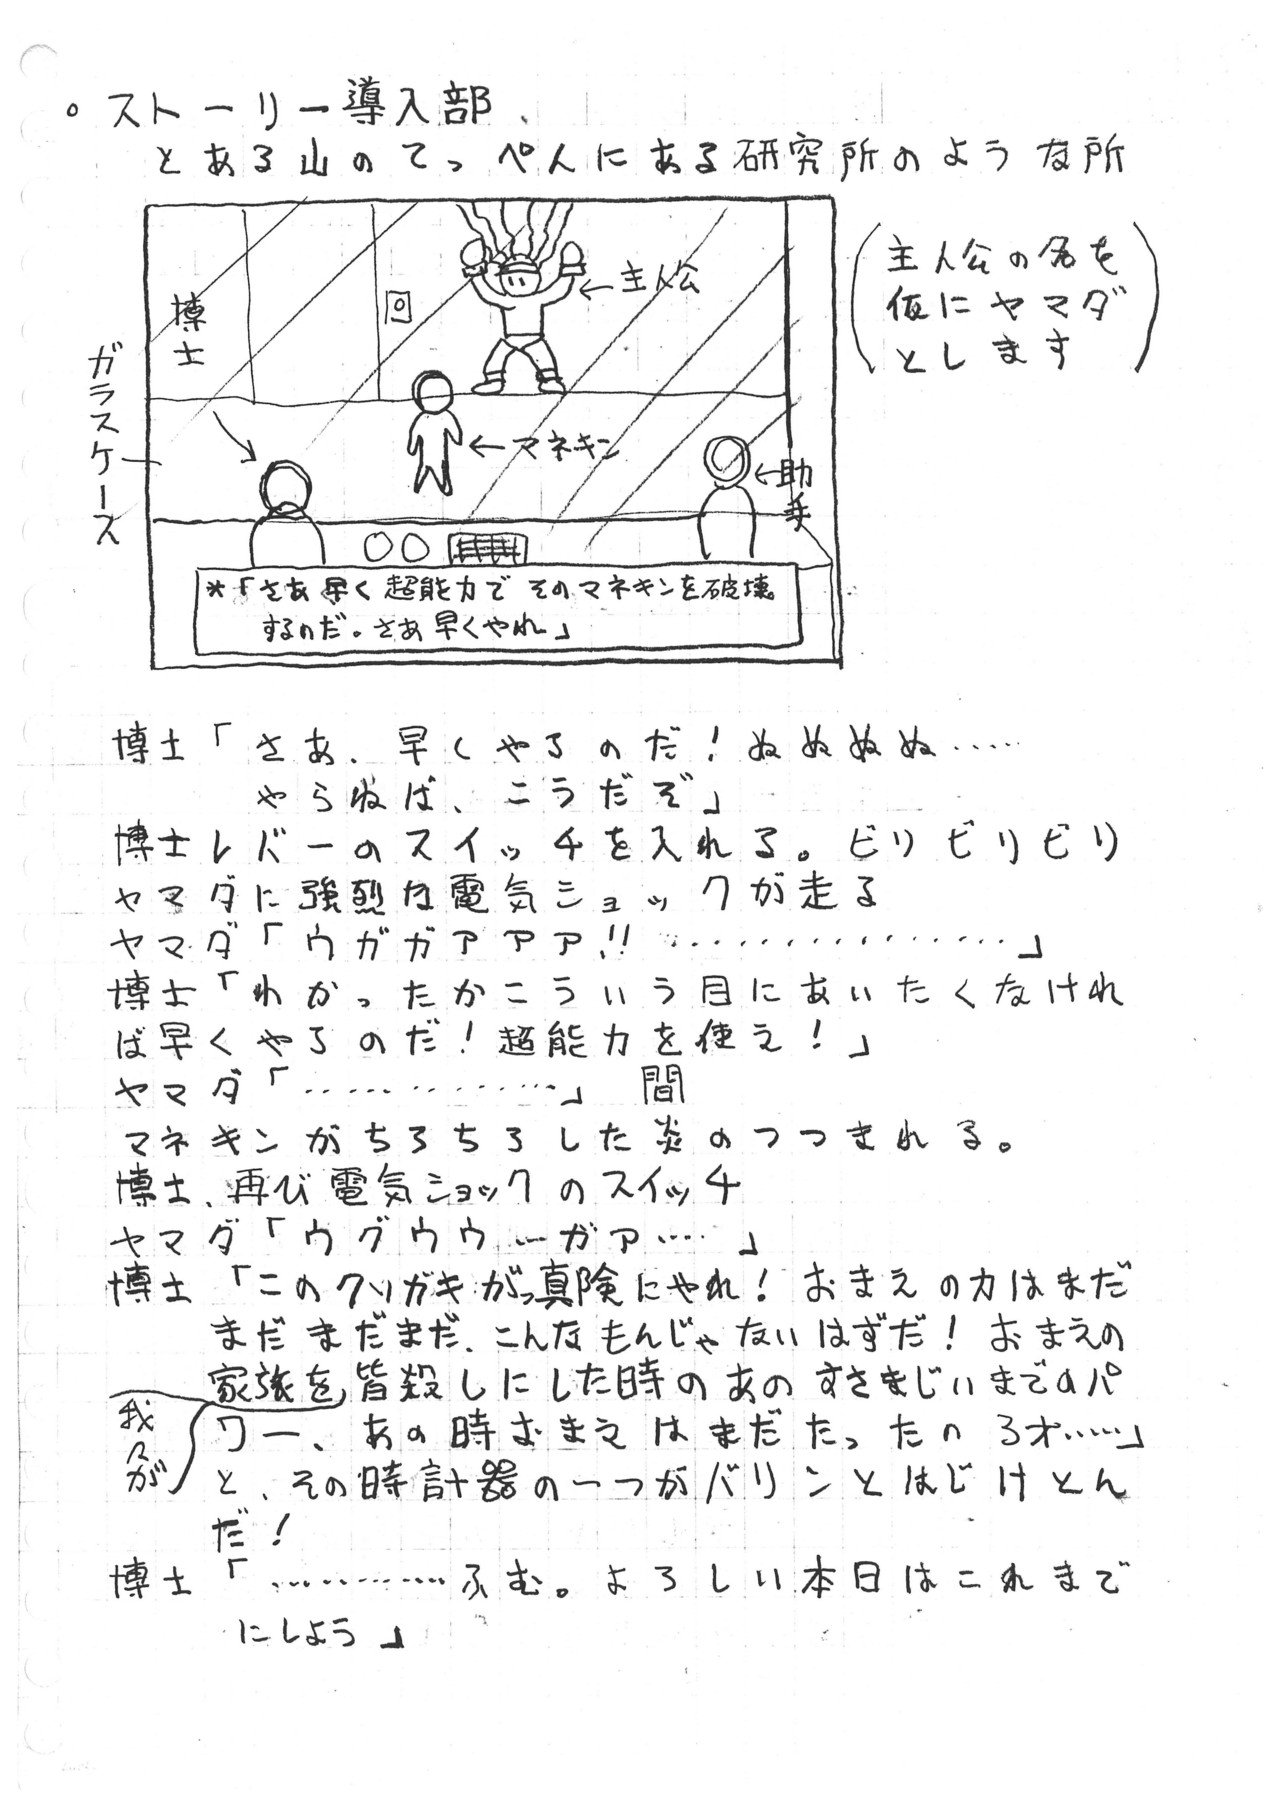 。ストーリー導入部、
とある山のてっぺんにある研究所のような所
主人公の名を
仮にヤマダ
とします
ガラスケース
博士
←主人公
←マネキン
←助手
*「さあ早く超能力でそのマネキンを破壊
するのだ。さあ早くやれ」
博士「さあ、早くやるのだ!ぬぬぬぬ‥‥‥
やらねば、こうだぞ」
博士レバーのスイッチを入れる。ビリビリビリ
ヤマダに強烈な電気ショックが走る
ヤマダ「ウガガアアア!!………………」
博士「わかったかこういう目にあいたくなけれ
ば早くやるのだ!超能力を使え!」
ヤマダ「……………」間
マネキンがちろちろした炎のつつまれる。
博士、再び電気ショックのスイッチ
ヤマダ「ウグウウ…ガァ……」
博士「このクソガキがっ真険にやれ!おまえの力はまだ
まだまだまだ、こんなもんじゃないはずだ!おまえの
家族を皆殺しにした時のあのすさまじいまでのパ
我々が
ワー、あの時おまえはまだたったの
と、その時計器の一つがバリンとはじけとん
だ!
博士「…………ふむ。よろしい本日はこれまで
にしよう」